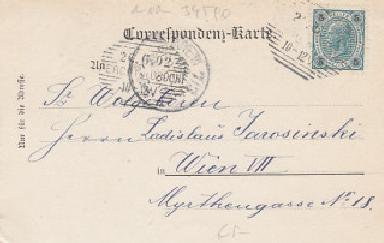 34570
Correspondenz-Karte
Sr. Wolgeboren
Herrn Ladislaus Jarosinski
in Wien VII
Myrthengasse Nº 18.
Nur für die Adresse.